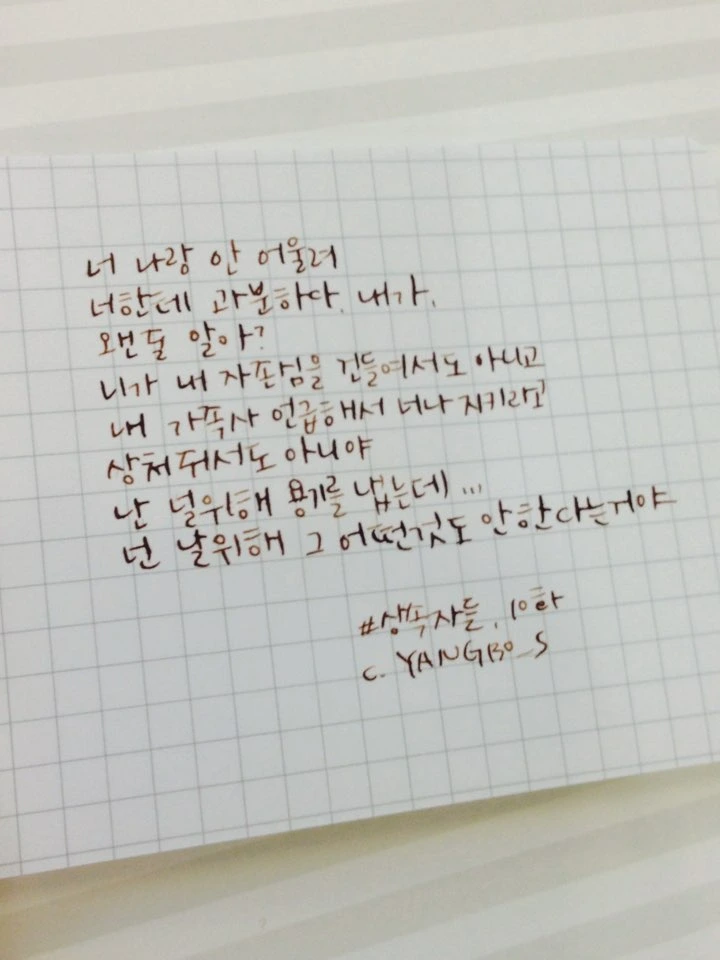 너 나랑 안 어울려
너한테 과분하다. 내가.
왠 둘 알아?
니가 내 자존심을 건들여서도 아니고
내 가족사 언급해서 너나 지키라고
상처줘서도 아니야
난 널위해 용기를 냈는데...
넌 날위해 그 어떤것도 안한다는거야
#상속자들. 10화
c. YANGBO_S